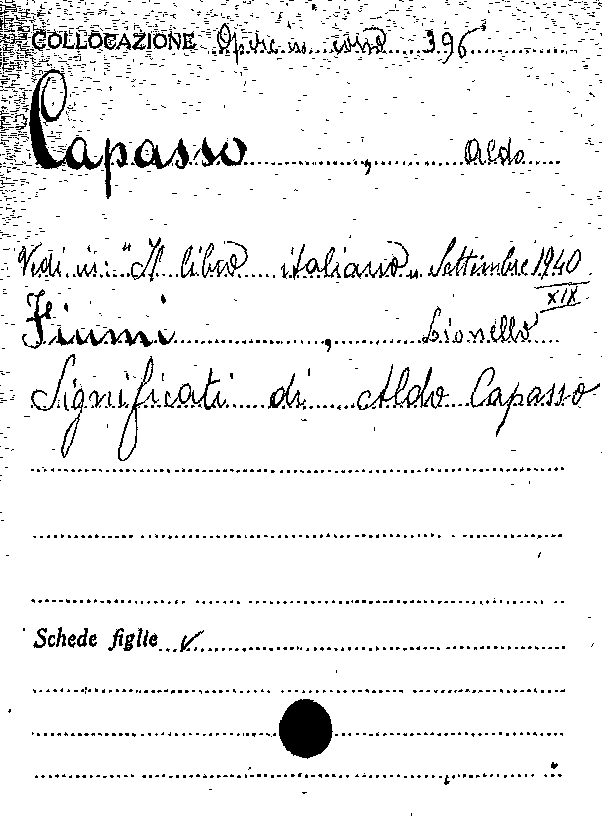 COLLOCAZIONE Opere in corso 396
Capasso, Aldo
Vedi in: "Il libro italiano" Settembre 1940
XIX
Fiumi, Lionello
Significati di Aldo Capasso
Schede figlie ✓